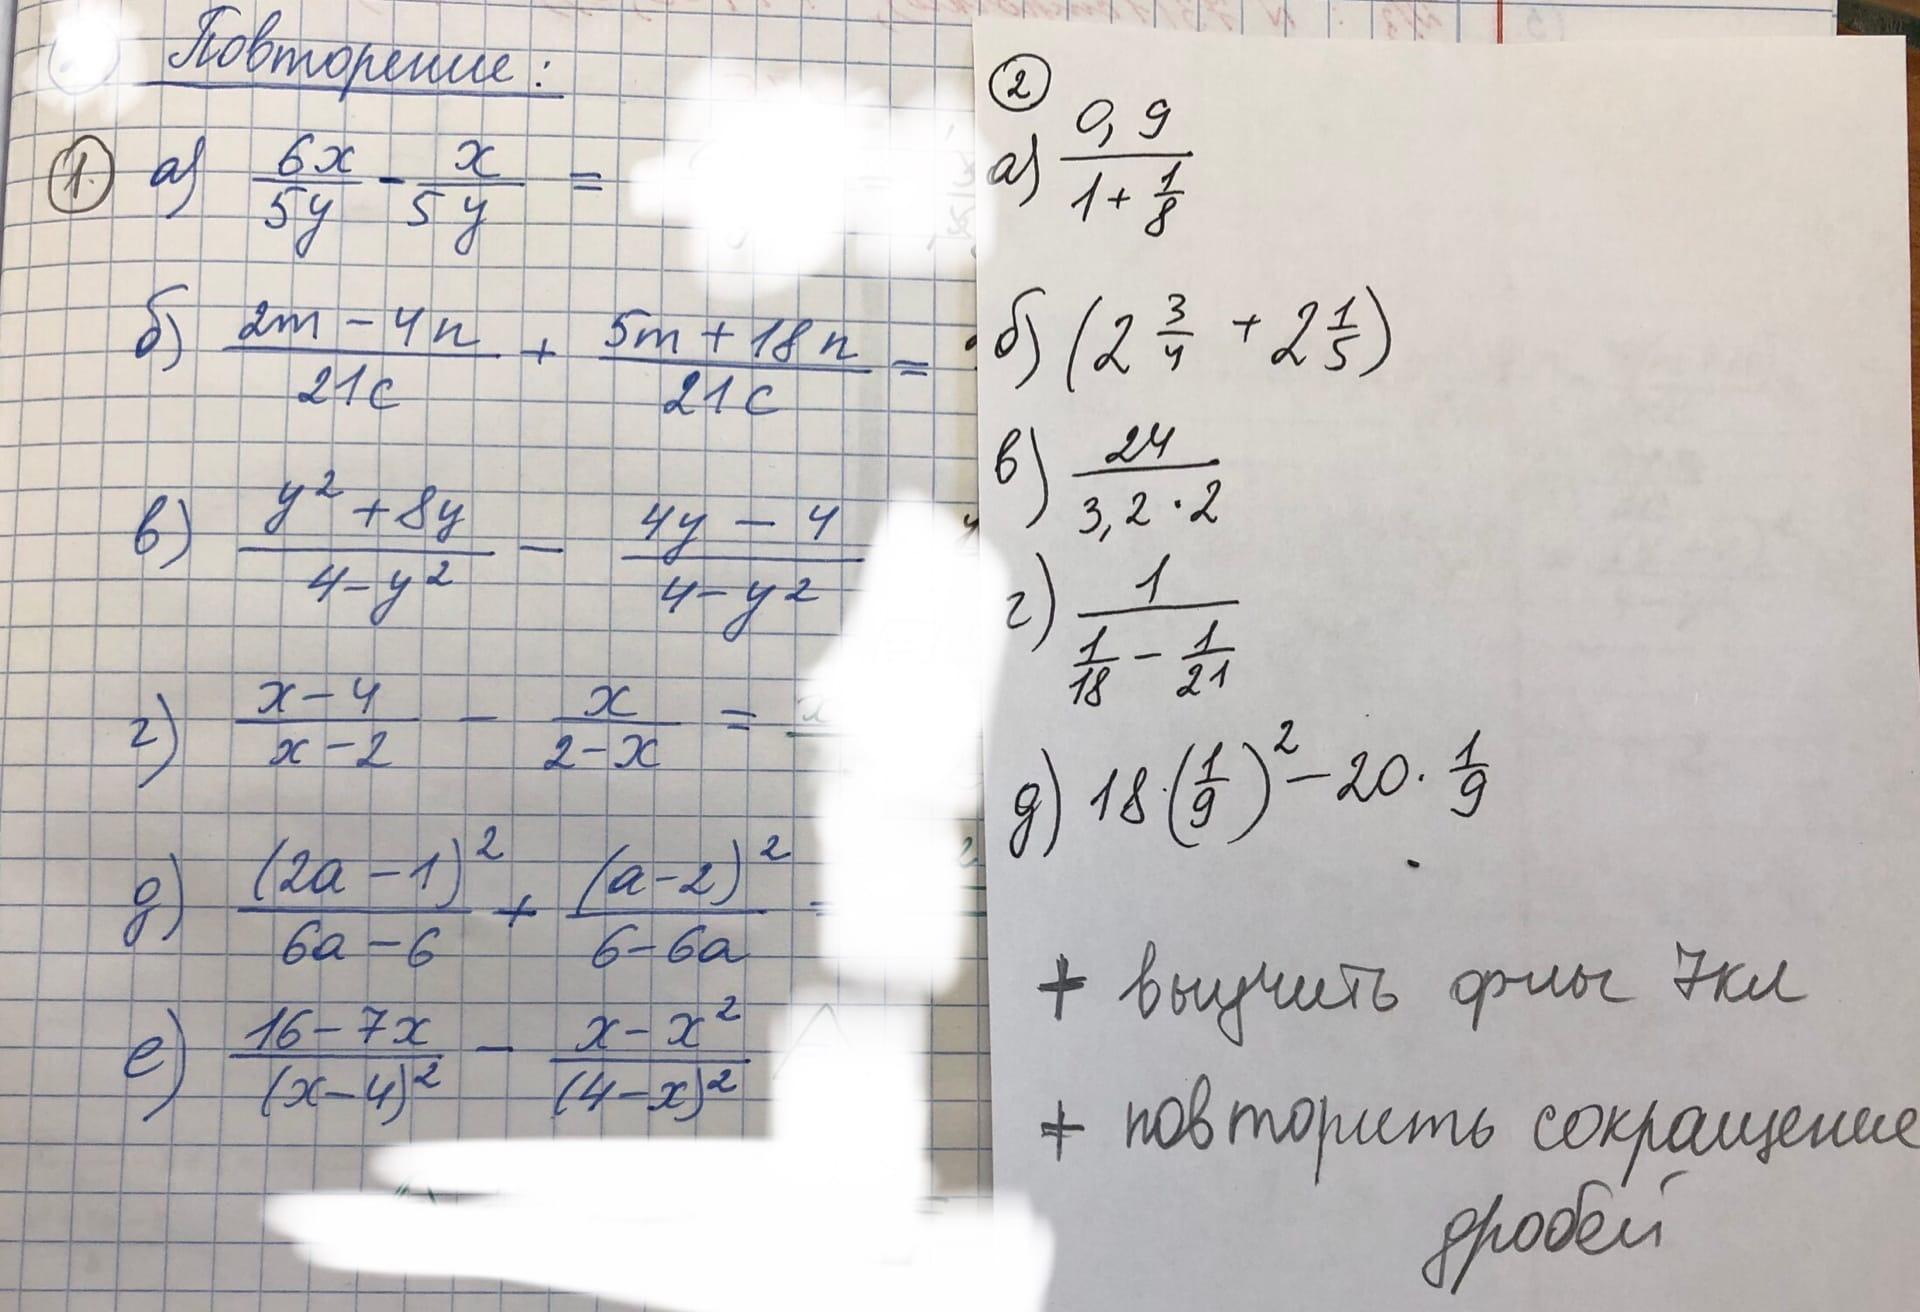 Повторение:
1. а) 6x/5y - x/5y =
б) (2m - 4n)/21c + (5m + 18n)/21c =
в) (y² + 8y)/(4 - y²) - (4y - 4)/(4 - y²)
г) (x - 4)/(x - 2) - x/(2 - x) =
д) (2a - 1)²/(6a - 6) + (a - 2)²/(6 - 6a) =
е) (16 - 7x)/(x - 4)² - (x - x²)/(4 - x)²
2
а) 0,9/(1 + 1/8)
б) (2 3/4 + 2 1/5)
в) 24/(3,2 · 2)
г) 1/(1/18 - 1/21)
д) 18·(1/9)² - 20 · 1/9
+ выучить ф-лы 7кл
+ повторить сокращение
дробей